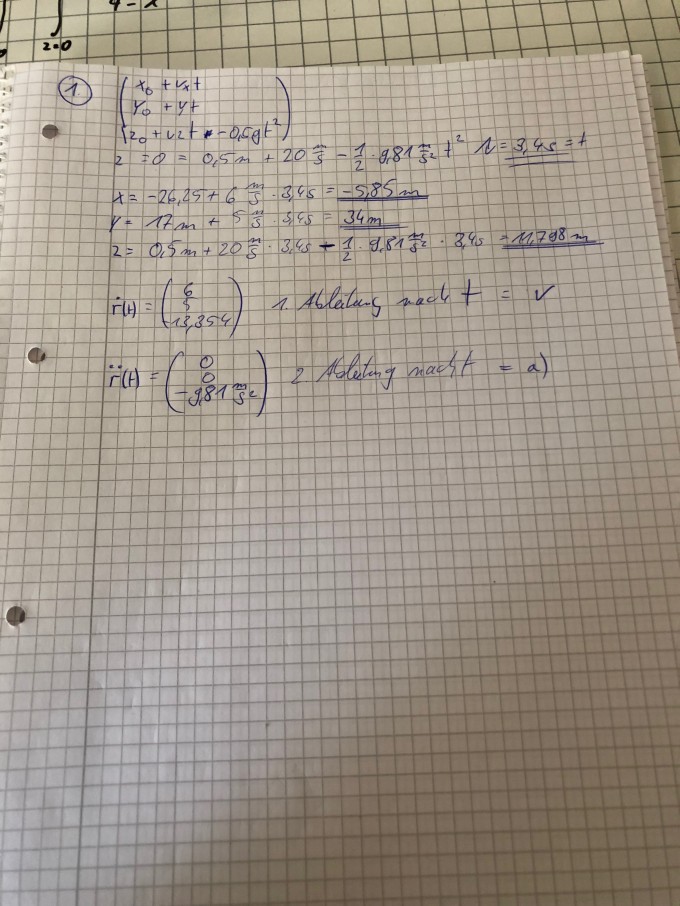 z=0
4-x
1.
x₀ + vₓt
y₀ + yt
z₀ + vzt - 0,5gt²
z =0 = 0,5m + 20 m/s - 1/2 · 9,81 m/s² t² = 3,4s = t
x = -26,25 + 6 m/s · 3,4s = -5,85m
y = 17m + 5 m/s · 3,4s = 34m
z = 0,5m + 20 m/s · 3,4s - 1/2 · 9,81 m/s² · 3,4s = 11,798m
ṙ(t) = ( 6 5 -13,354 ) 1. Ableitung nach t = v
r̈(t) = ( 0 0 -9,81 m/s² ) 2 Ableitung nach t = a)